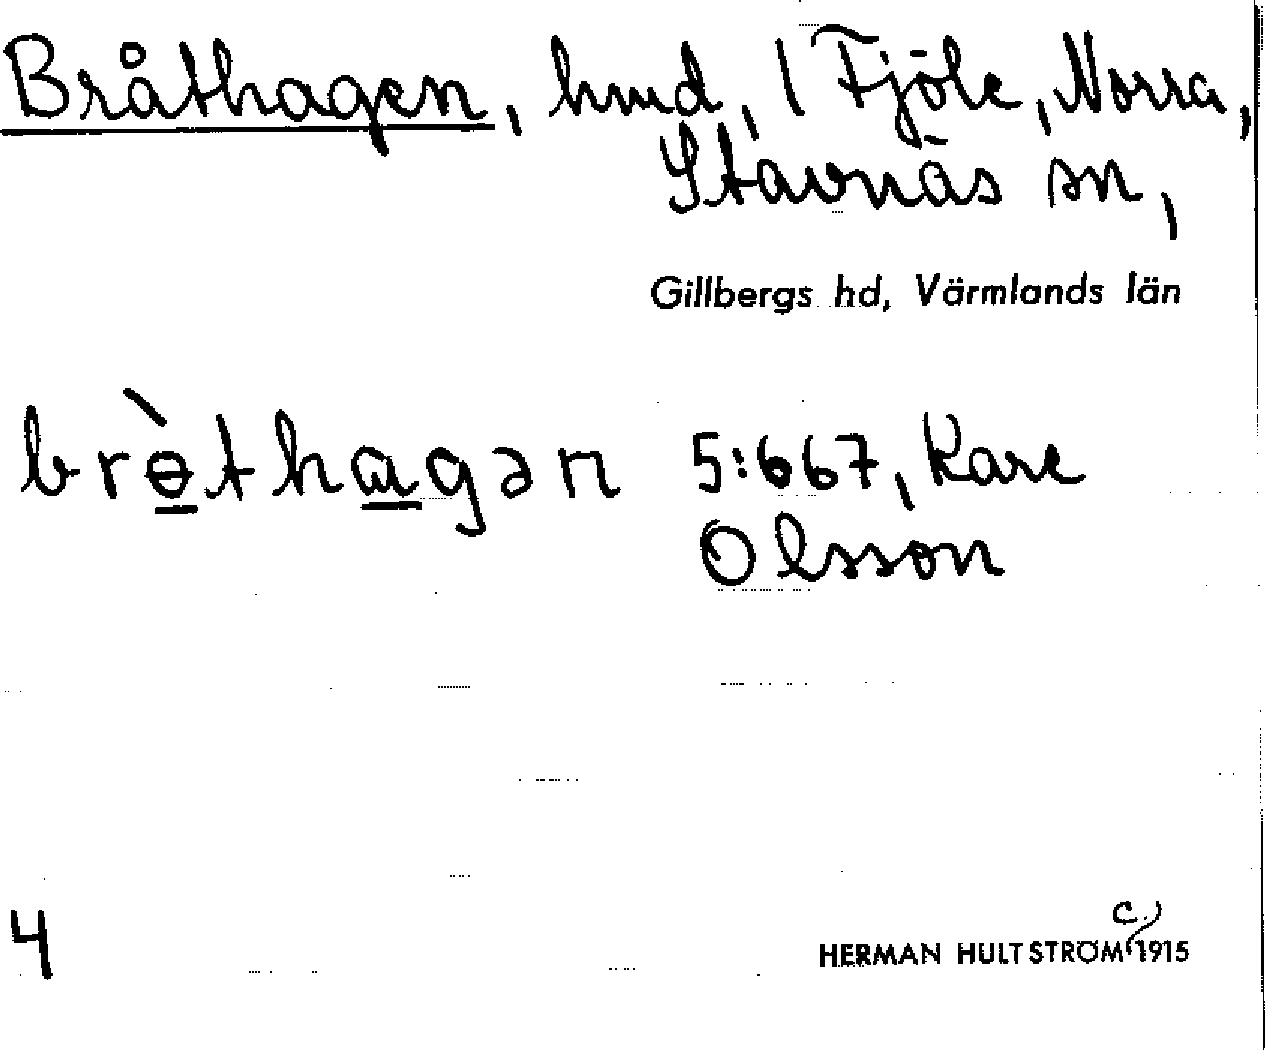 Bråthagen, hmd, 1 Fjöle, Norra,
Stavnäs sn,
Gillbergs hd, Värmlands län
brɵ̀thagən 5:667, Kare
Olsson
4
c.
HERMAN HULTSTRÖM 1915